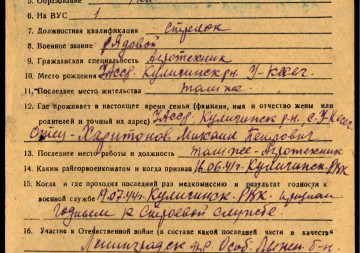 5. Образование
6. На ВУС 1
7. Должностная квалификация Стрелок
8. Военное звание Рядовой
9. Гражданская специальность Агротехник
10. Место рождения
11. Последнее место жительства там же.
12. Где проживает в настоящее время семья (фамилия, имя и отчество жены или
родителей и точный их адрес)
Отец - Харитонов Михаил Петрович
13. Последнее место работы и должность там же - Агротехник
14. Каким райгорвоенкоматом и когда призван 16.06.41г.
15. Когда и где проходил последний раз медкомиссию и результат годности к
военной службе 19.07.44г. РВК признан
годным к строевой службе
16. Участие в Отечественной войне (в составе какой последней части в качестве
Ленинградск. фр. Особ. Лыжн. б-н.